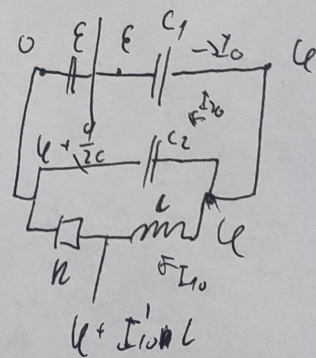 0 ε ε C₁ -I₀ φ
I₂₀
φ + q/2c C₂
L φ
R I₁₀
φ + I'₁₀ L